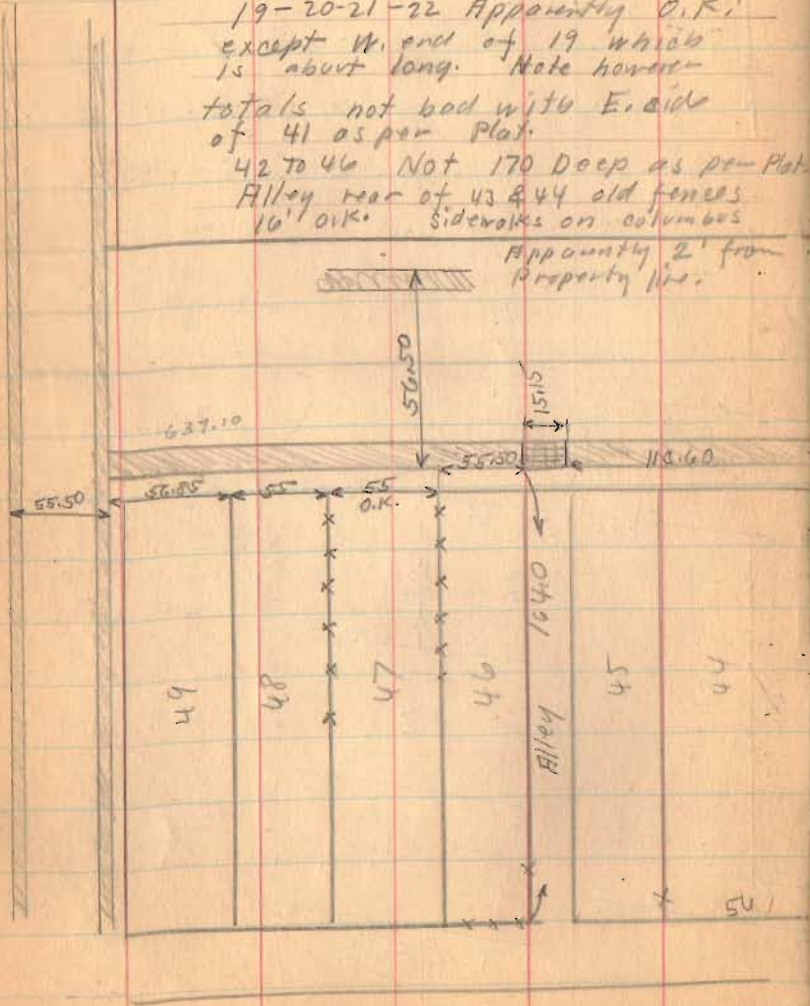 19-20-21-22 Apparently O.K.
except W. end of 19 which
is aburt long. Note however
totals not bad with E. side
of 41 as per Plat.
42 To 46 Not 170 Deep as per Plat
Alley rear of 43 & 44 old fences
16' O.K. Sidewalks on columbus
Apparently 2' from
Property line.
56.50
15.15
637.10
55.50
118.60
55.50
56.85
55
55
O.K.
49
48
47
46
Alley 164.0
45
44
54